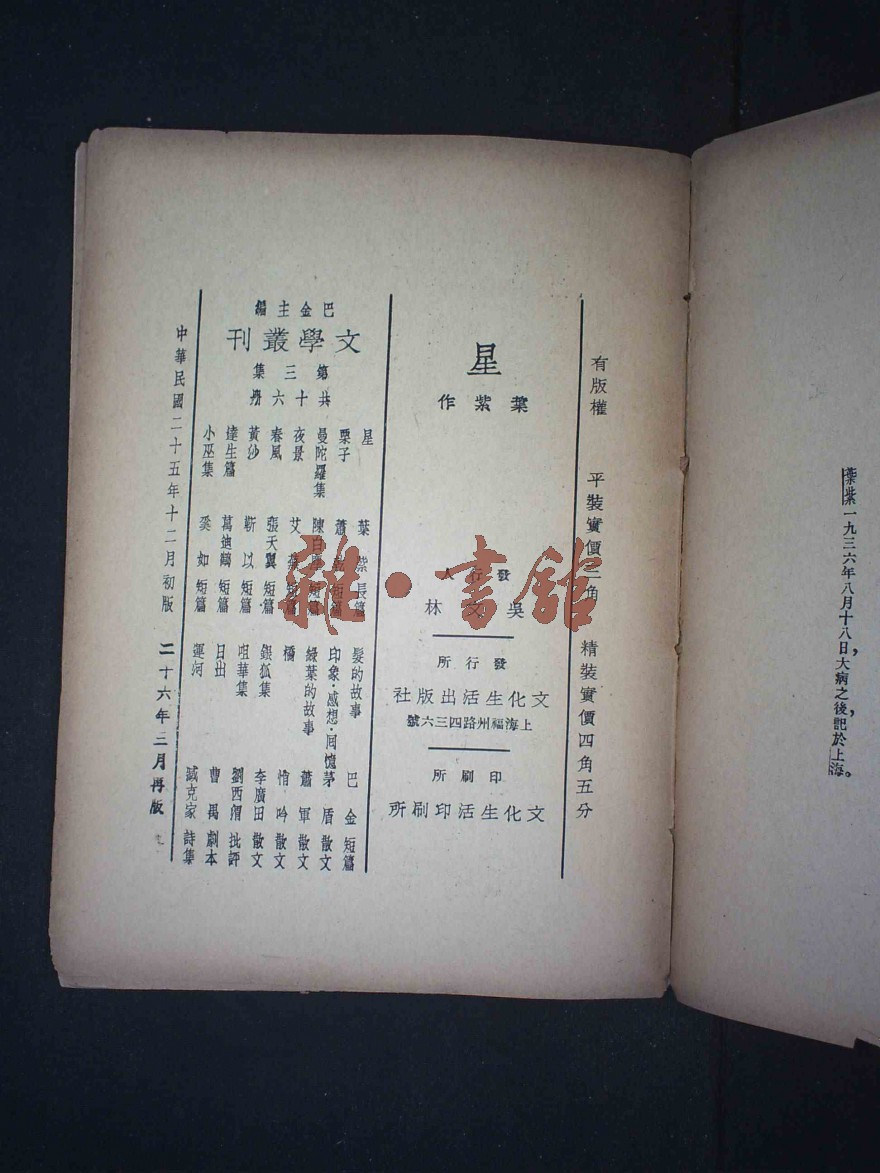 葉紫一九三六年八月十八日,大病之後,記於上海。
有版權
平裝實價二角
精裝實價四角五分
星
葉紫作
發行人
吳文林
發行所
文化生活出版社
上海福州路四三六號
印刷所
文化生活印刷所
巴金主編
文學叢刊
第三集
共十六冊
星 葉紫 長篇
栗子 蕭乾 短篇
曼陀羅集 陳白塵 短篇
夜景 艾蕪 短篇
春風 張天翼 短篇
黃沙 靳以 短篇
達生篇 萬迪鶴 短篇
小巫集 奚如 短篇
髮的故事 巴金 短篇
印象·感想·回憶 茅盾 散文
綠葉的故事 蕭軍 散文
橋 悄吟 散文
銀狐集 李廣田 散文
咀華集 劉西渭 批評
日出 曹禺 劇本
運河 臧克家 詩集
中華民國二十五年十二月初版
二十六年三月再版
雜·書館